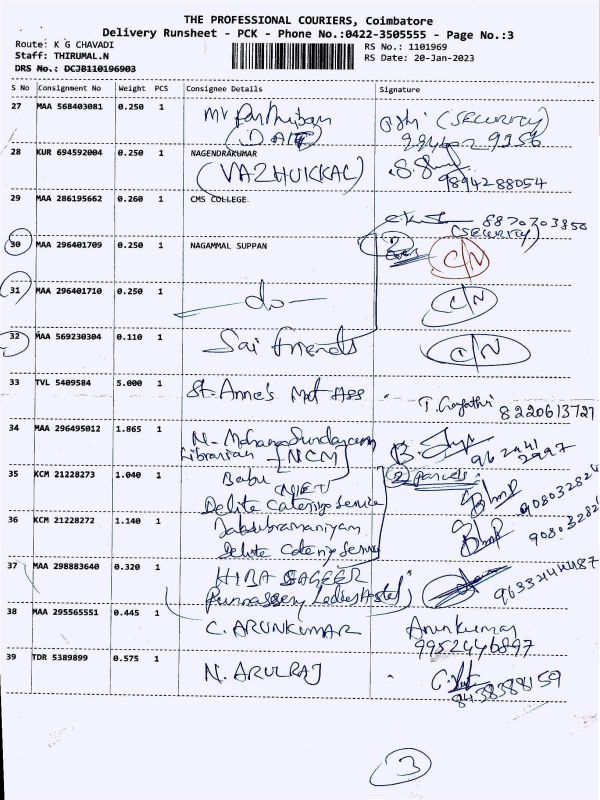 THE PROFESSIONAL COURIERS, Coimbatore
Delivery Runsheet - PCK - Phone No.:0422-3505555 - Page No.:3
Route: K G CHAVADI
RS No.: 1101969
Staff: THIRUMAL.N
RS Date: 20-Jan-2023
DRS No.: DCJB110196903
S No Consignment No Weight PCS Consignee Details Signature
27 MAA 568403081 0.250 1 Mr Parthiban (SECURITY)
28 KUR 694592004 0.250 1 NAGENDRAKUMAR
(VAZHUKKAL) 9894288054
29 MAA 286195662 0.260 1 CMS COLLEGE
8870703850
(SECURITY)
30 MAA 296401709 0.250 1 NAGAMMAL SUPPAN 2 C/N
31 MAA 296401710 0.250 1 -do- C/N
32 MAA 569230304 0.110 1 Sai friends C/N
33 TVL 5409584 1.000 1 St. Anne's Mat Ass T. Gayathri 8220613727
34 MAA 296495012 1.865 1 N. Mohana Sundaram
Librarian NCM
35 KCM 21228273 1.040 1 Babu 2 Parcels
Delite Catering Service
36 KCM 21228272 1.140 1
Delite Catering Service
37 MAA 298883640 0.320 1 HIBA SAGEER
Ladies Hostel
38 MAA 295565551 0.445 1 C. ARUNKUMAR Arunkumar
9952446897
39 TDR 5389899 0.575 1 N. ARULRAJ
8438388159
3